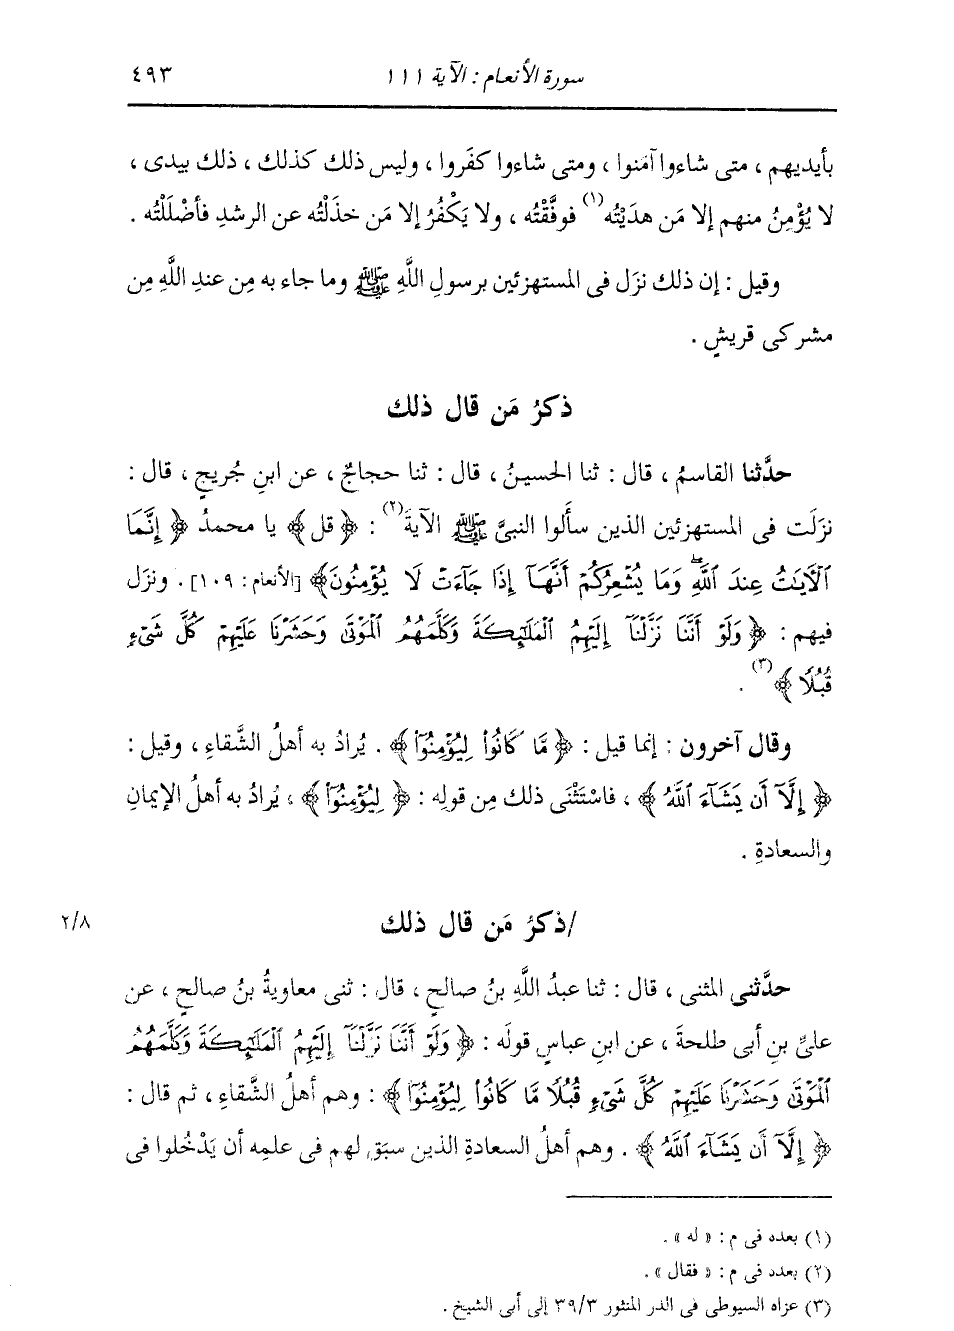 سورة الأنعام : الآية ١١١ ٤٩٣
بأيديهم ، متى شاءوا آمَنوا ، ومتى شاءوا كفَروا ، وليس ذلك كذلك ، ذلك بيدى ،
لا يُؤْمِنُ منهم إلا مَن هدَيْتُه(١) فوفَّقْتُه ، ولا يَكْفُرُ إلا مَن خذَلْتُه عن الرشدِ فأضْلَلْتُه .
وقيل : إن ذلك نزَل فى المستهزئين برسولِ اللَّهِ ﷺ وما جاء به مِن عندِ اللَّهِ مِن
مشركى قريشٍ .
ذكرُ مَن قال ذلك
حدَّثنا القاسمُ ، قال : ثنا الحسينُ ، قال : ثنا حجاجٌ ، عن ابنِ جُريجٍ ، قال :
نزَلَت فى المستهزئين الذين سألوا النبىَّ ﷺ الآيةَ(٢) : ﴿ قل ﴾ يا محمدُ ﴿ إِنَّمَا
ٱلْأَيَٰتُ عِندَ ٱللَّهِۖ وَمَا يُشْعِرُكُمْ أَنَّهَآ إِذَا جَآءَتْ لَا يُؤْمِنُونَ ﴾ [الأنعام : ١٠٩] . ونزَل
فيهم : ﴿ وَلَوْ أَنَّنَا نَزَّلْنَآ إِلَيْهِمُ ٱلْمَلَٰٓئِكَةَ وَكَلَّمَهُمُ ٱلْمَوْتَىٰ وَحَشَرْنَا عَلَيْهِمْ كُلَّ شَىْءٍ
قُبُلًا ﴾(٣) .
وقال آخرون : إنما قيل : ﴿ مَّا كَانُوا۟ لِيُؤْمِنُوٓا۟ ﴾ . يُرادُ به أهلُ الشَّقاءِ ، وقيل :
﴿ إِلَّآ أَن يَشَآءَ ٱللَّهُ ﴾ ، فاسْتَثْنَى ذلك مِن قولِه : ﴿ لِيُؤْمِنُوٓا۟ ﴾ ، يُرادُ به أهلُ الإيمانِ
والسعادةِ .
/ذكرُ مَن قال ذلك ٢/٨
حدَّثنى المثنى ، قال : ثنا عبدُ اللَّهِ بنُ صالحٍ ، قال : ثنى معاويةُ بنُ صالحٍ ، عن
علىِّ بنِ أبى طلحةَ ، عن ابنِ عباسٍ قولَه : ﴿ وَلَوْ أَنَّنَا نَزَّلْنَآ إِلَيْهِمُ ٱلْمَلَٰٓئِكَةَ وَكَلَّمَهُمُ
ٱلْمَوْتَىٰ وَحَشَرْنَا عَلَيْهِمْ كُلَّ شَىْءٍ قُبُلًا مَّا كَانُوا۟ لِيُؤْمِنُوٓا۟ ﴾ : وهم أهلُ الشَّقاءِ ، ثم قال :
﴿ إِلَّآ أَن يَشَآءَ ٱللَّهُ ﴾ . وهم أهلُ السعادةِ الذين سبَق لهم فى علمِه أن يَدْخُلوا فى
(١) بعده فى م : « له » .
(٢) بعده فى م : « فقال » .
(٣) عزاه السيوطى فى الدر المنثور ٣/٣٩ إلى أبى الشيخ .